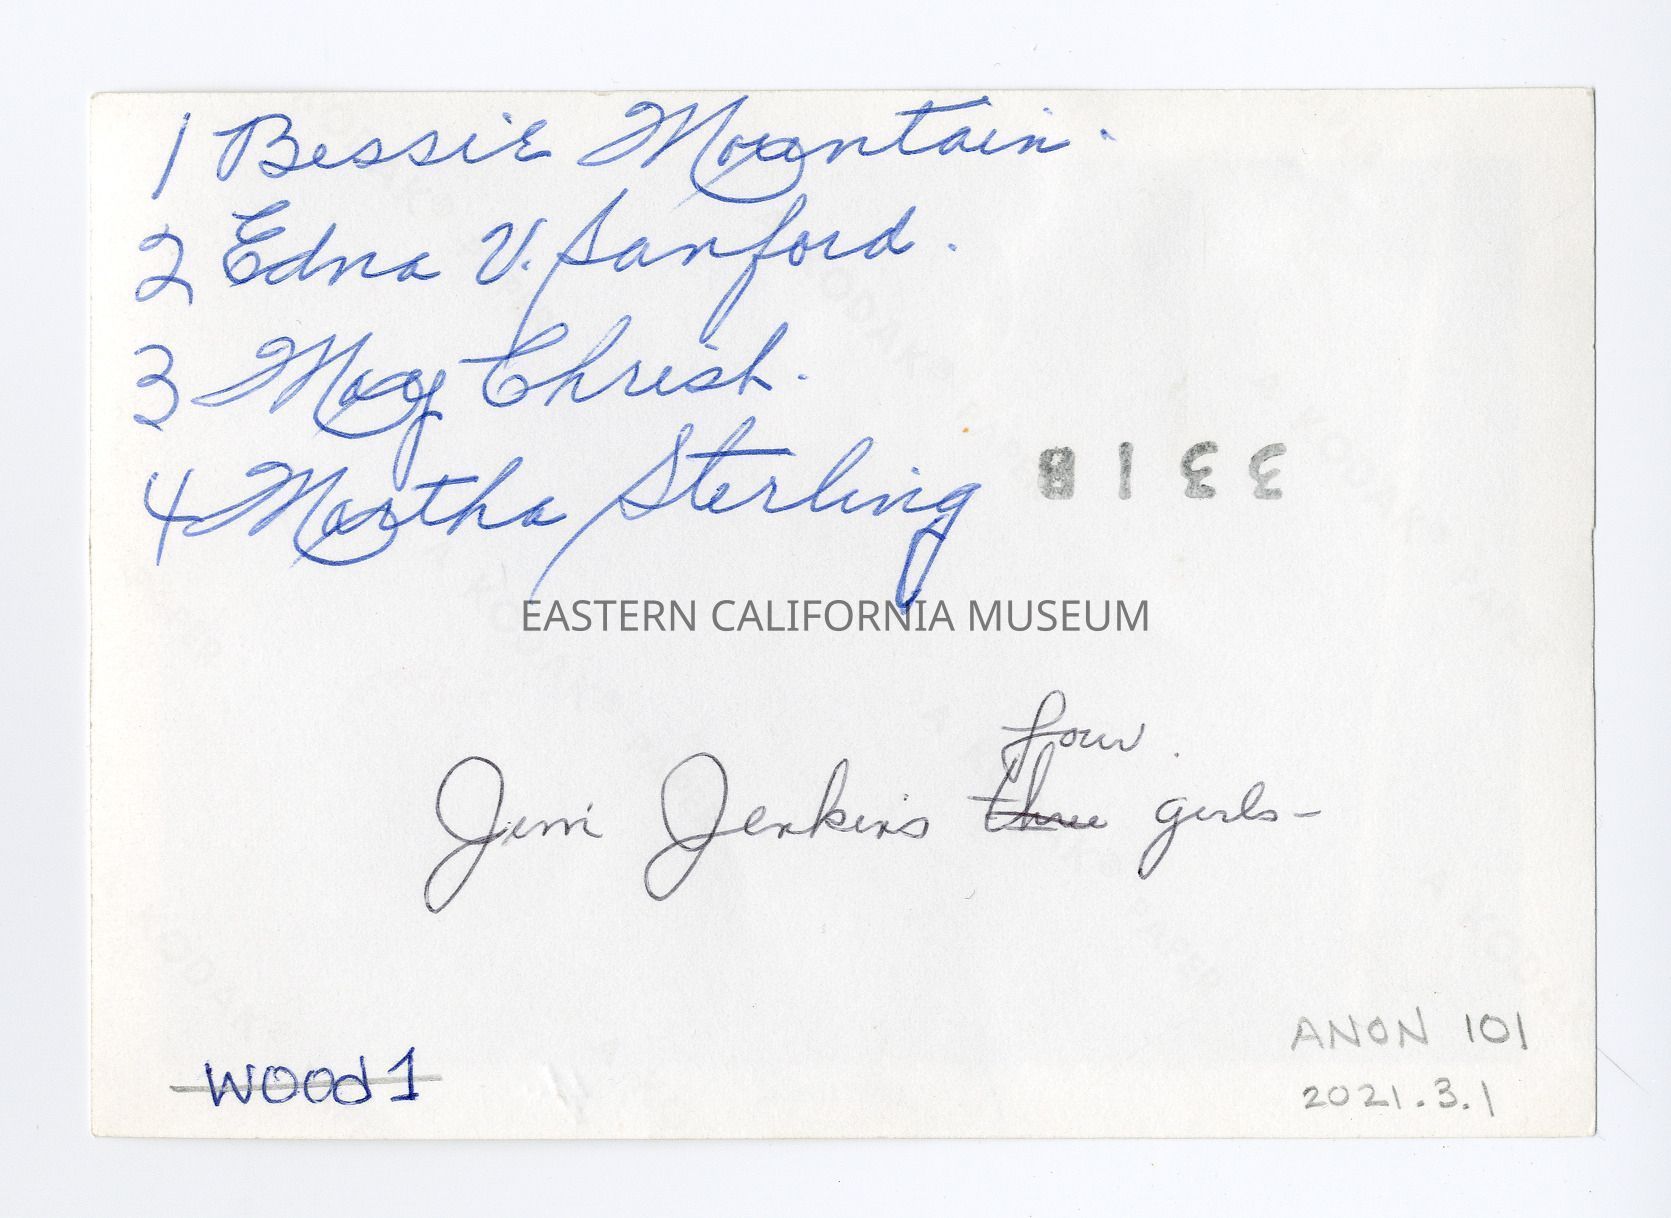 1 Bessie Mountain.
2 Edna V. Sanford.
3 May Christ.
4 Martha Sterling
EASTERN CALIFORNIA MUSEUM
four
Jim Jenkins three girls-
ANON 101
WOOD1
2021.3.1